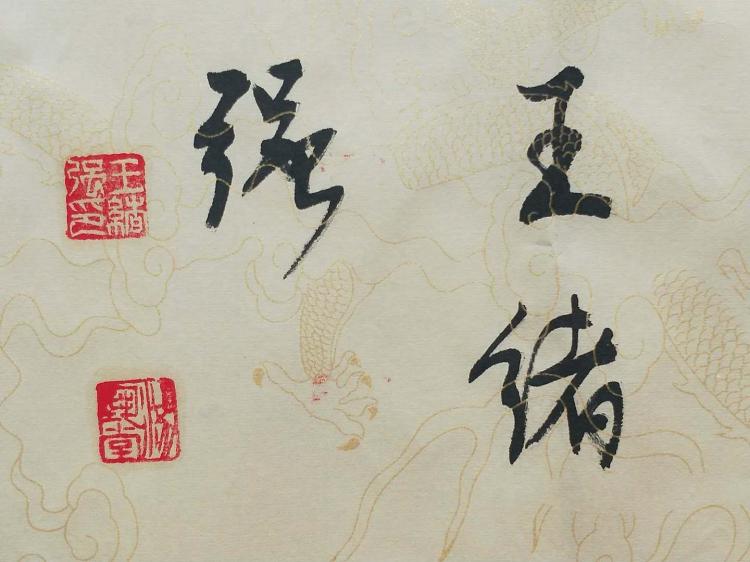 王绪
强
王绪
强印